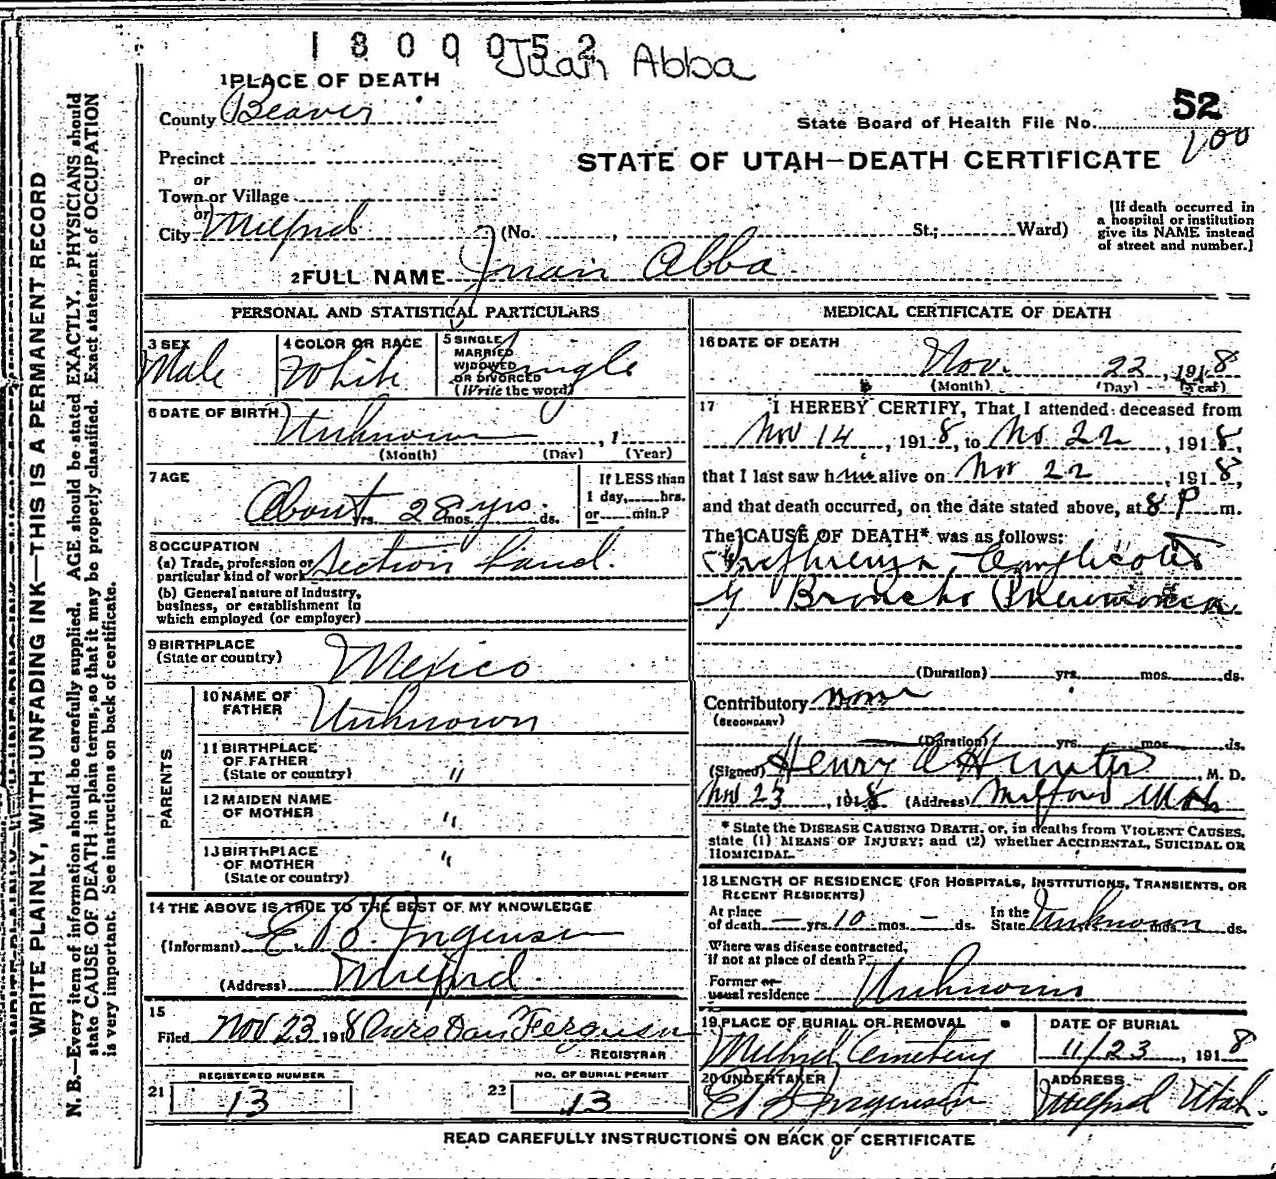 1 8 0 0 0 5 2 Juan Abba
1 PLACE OF DEATH
County Beaver
52
State Board of Health File No.
100
Precinct
or
STATE OF UTAH—DEATH CERTIFICATE
Town or Village
or
City Milford (No. , St.; Ward)
[If death occurred in
a hospital or institution
give its NAME instead
of street and number.]
2 FULL NAME Juan Abba
PERSONAL AND STATISTICAL PARTICULARS
3 SEX Male
4 COLOR OR RACE White
5 SINGLE
MARRIED
WIDOWED
OR DIVORCED
(Write the word) Single
6 DATE OF BIRTH Unknown , 1
(Month) (Day) (Year)
7 AGE
About 28 yrs.
yrs. mos. ds.
If LESS than
1 day, hrs.
or min.?
8 OCCUPATION
(a) Trade, profession or
particular kind of work Section hand.
(b) General nature of industry,
business, or establishment in
which employed (or employer)
9 BIRTHPLACE
(State or country) Mexico
PARENTS
10 NAME OF
FATHER Unknown
11 BIRTHPLACE
OF FATHER
(State or country) "
12 MAIDEN NAME
OF MOTHER "
13 BIRTHPLACE
OF MOTHER
(State or country) "
14 THE ABOVE IS TRUE TO THE BEST OF MY KNOWLEDGE
(Informant)
(Address) Milford.
15
Filed Nov 23 1918 Ferguson
REGISTRAR
REGISTERED NUMBER
21 13
NO. OF BURIAL PERMIT
22 13
MEDICAL CERTIFICATE OF DEATH
16 DATE OF DEATH
Nov. 22, 1918
(Month) (Day) (Year)
17 I HEREBY CERTIFY, That I attended deceased from
Nov 14, 1918, to No 22, 1918,
that I last saw him alive on Nov 22, 1918,
and that death occurred, on the date stated above, at 8 P m.
The CAUSE OF DEATH* was as follows:
Influenza Complicated
By Broncho Pneumonia
(Duration) yrs. mos. ds.
Contributory none
(SECONDARY)
(Duration) yrs. mos. ds.
(Signed) Henry A Hunter, M. D.
Nov 23, 1918 (Address) Milford Utah
* State the DISEASE CAUSING DEATH, or, in deaths from VIOLENT CAUSES,
state (1) MEANS OF INJURY; and (2) whether ACCIDENTAL, SUICIDAL OR
HOMICIDAL.
18 LENGTH OF RESIDENCE (FOR HOSPITALS, INSTITUTIONS, TRANSIENTS, OR
RECENT RESIDENTS)
At place
of death — yrs. 10 mos. — ds.
In the
State Unknown mos. ds.
Where was disease contracted,
if not at place of death?
Former or
usual residence Unknown
19 PLACE OF BURIAL OR REMOVAL
Milford Cemetery
DATE OF BURIAL
11/23, 1918
20 UNDERTAKER
ADDRESS
Milford Utah.
READ CAREFULLY INSTRUCTIONS ON BACK OF CERTIFICATE
WRITE PLAINLY, WITH UNFADING INK—THIS IS A PERMANENT RECORD
N. B.—Every item of information should be carefully supplied. AGE should be stated EXACTLY. PHYSICIANS should
state CAUSE OF DEATH in plain terms, so that it may be properly classified. Exact statement of OCCUPATION
is very important. See instructions on back of certificate.